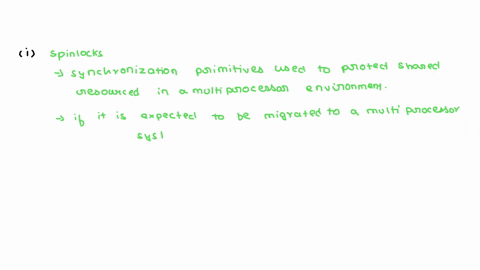 (i) Spinlocks
→ synchronization primitives used to protect shared
resourced in a multiprocessor environment.
→ if it is expected to be migrated to a multiprocessor
sysl